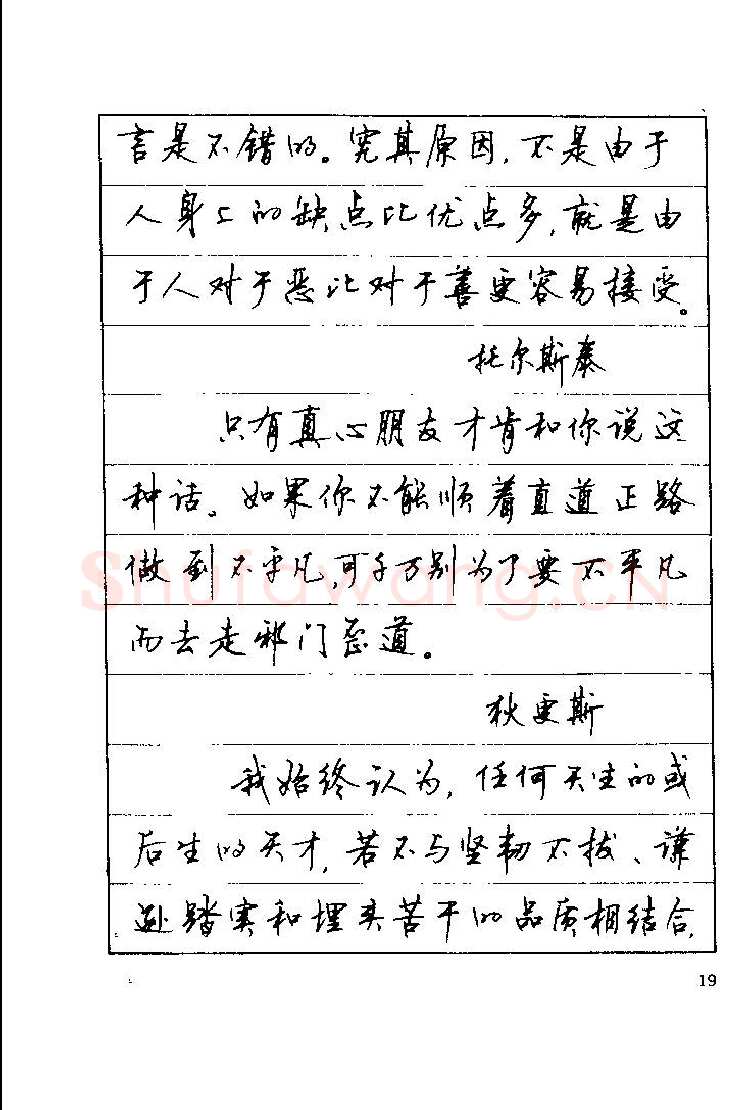 言是不错的。究其原因,不是由于
人身上的缺点比优点多,就是由
于人对于恶比对于善更容易接受。
托尔斯泰
只有真心朋友才肯和你说这
种话。如果你不能顺着直道正路
做到不平凡,可千万别为了要不平凡
而去走邪门歪道。
狄更斯
我始终认为,任何天生的或
后生的天才,若不与坚韧不拔、谦
逊踏实和埋头苦干的品质相结合,
Shufawang.CN
19